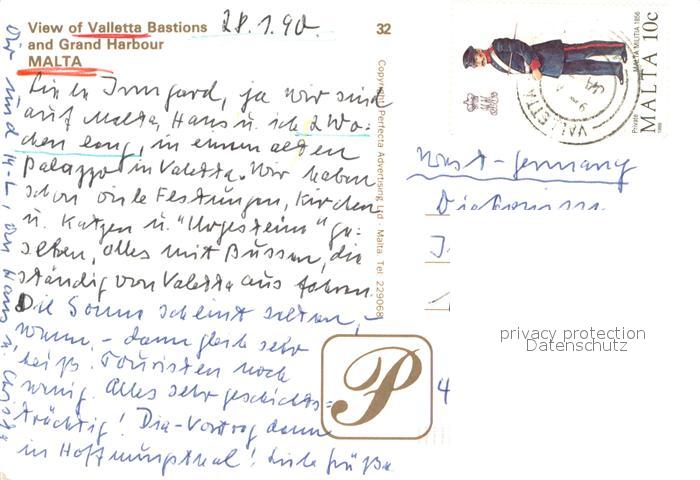 View of Valletta Bastions
and Grand Harbour
MALTA
28.1.90.
32
Liebe Irmgard, ja wir sind
auf Malta, Hans u. ich 2 Wo-
chen lang, in einem alten
Palazzo in Valetta. Wir haben
schon viele Festungen, Kirchen
u. Katzen u. "Urgestein" ge-
sehen, alles mit Bussen, die
ständig von Valetta aus fahren.
Die Sonne scheint selten,
wenn, - dann gleich sehr
heiß. Touristen noch
wenig. Alles sehr geschichts=
trächtig! Dia-Vortrag dann
in Hoffnungsthal! Liebe Grüße
Hans u.
Copyright Perfecta Advertising Ltd - Malta. Tel: 229068
P
MALTA 10c
MALTA MILITIA 1856
Private
VALLETTA
West-Germany
Diakonisse
I.
4
privacy protection
Datenschutz